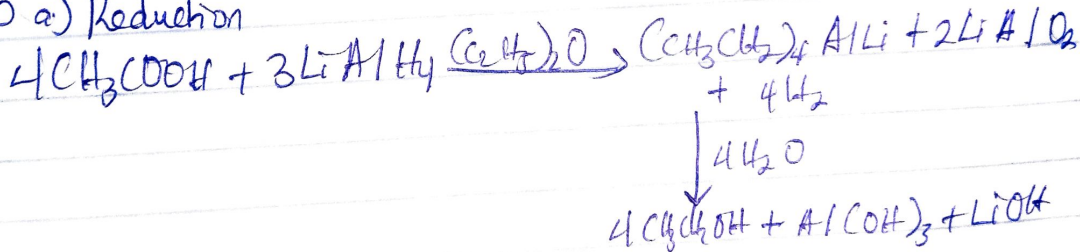 a.) Reduction
4CH₃COOH + 3LiAlH₄ (C₂H₅)₂O → (CH₃CH₂)₄ AlLi + 2LiAlO₂
+ 4H₂
↓ 4H₂O
4CH₃CH₂OH + Al(OH)₃ + LiOH